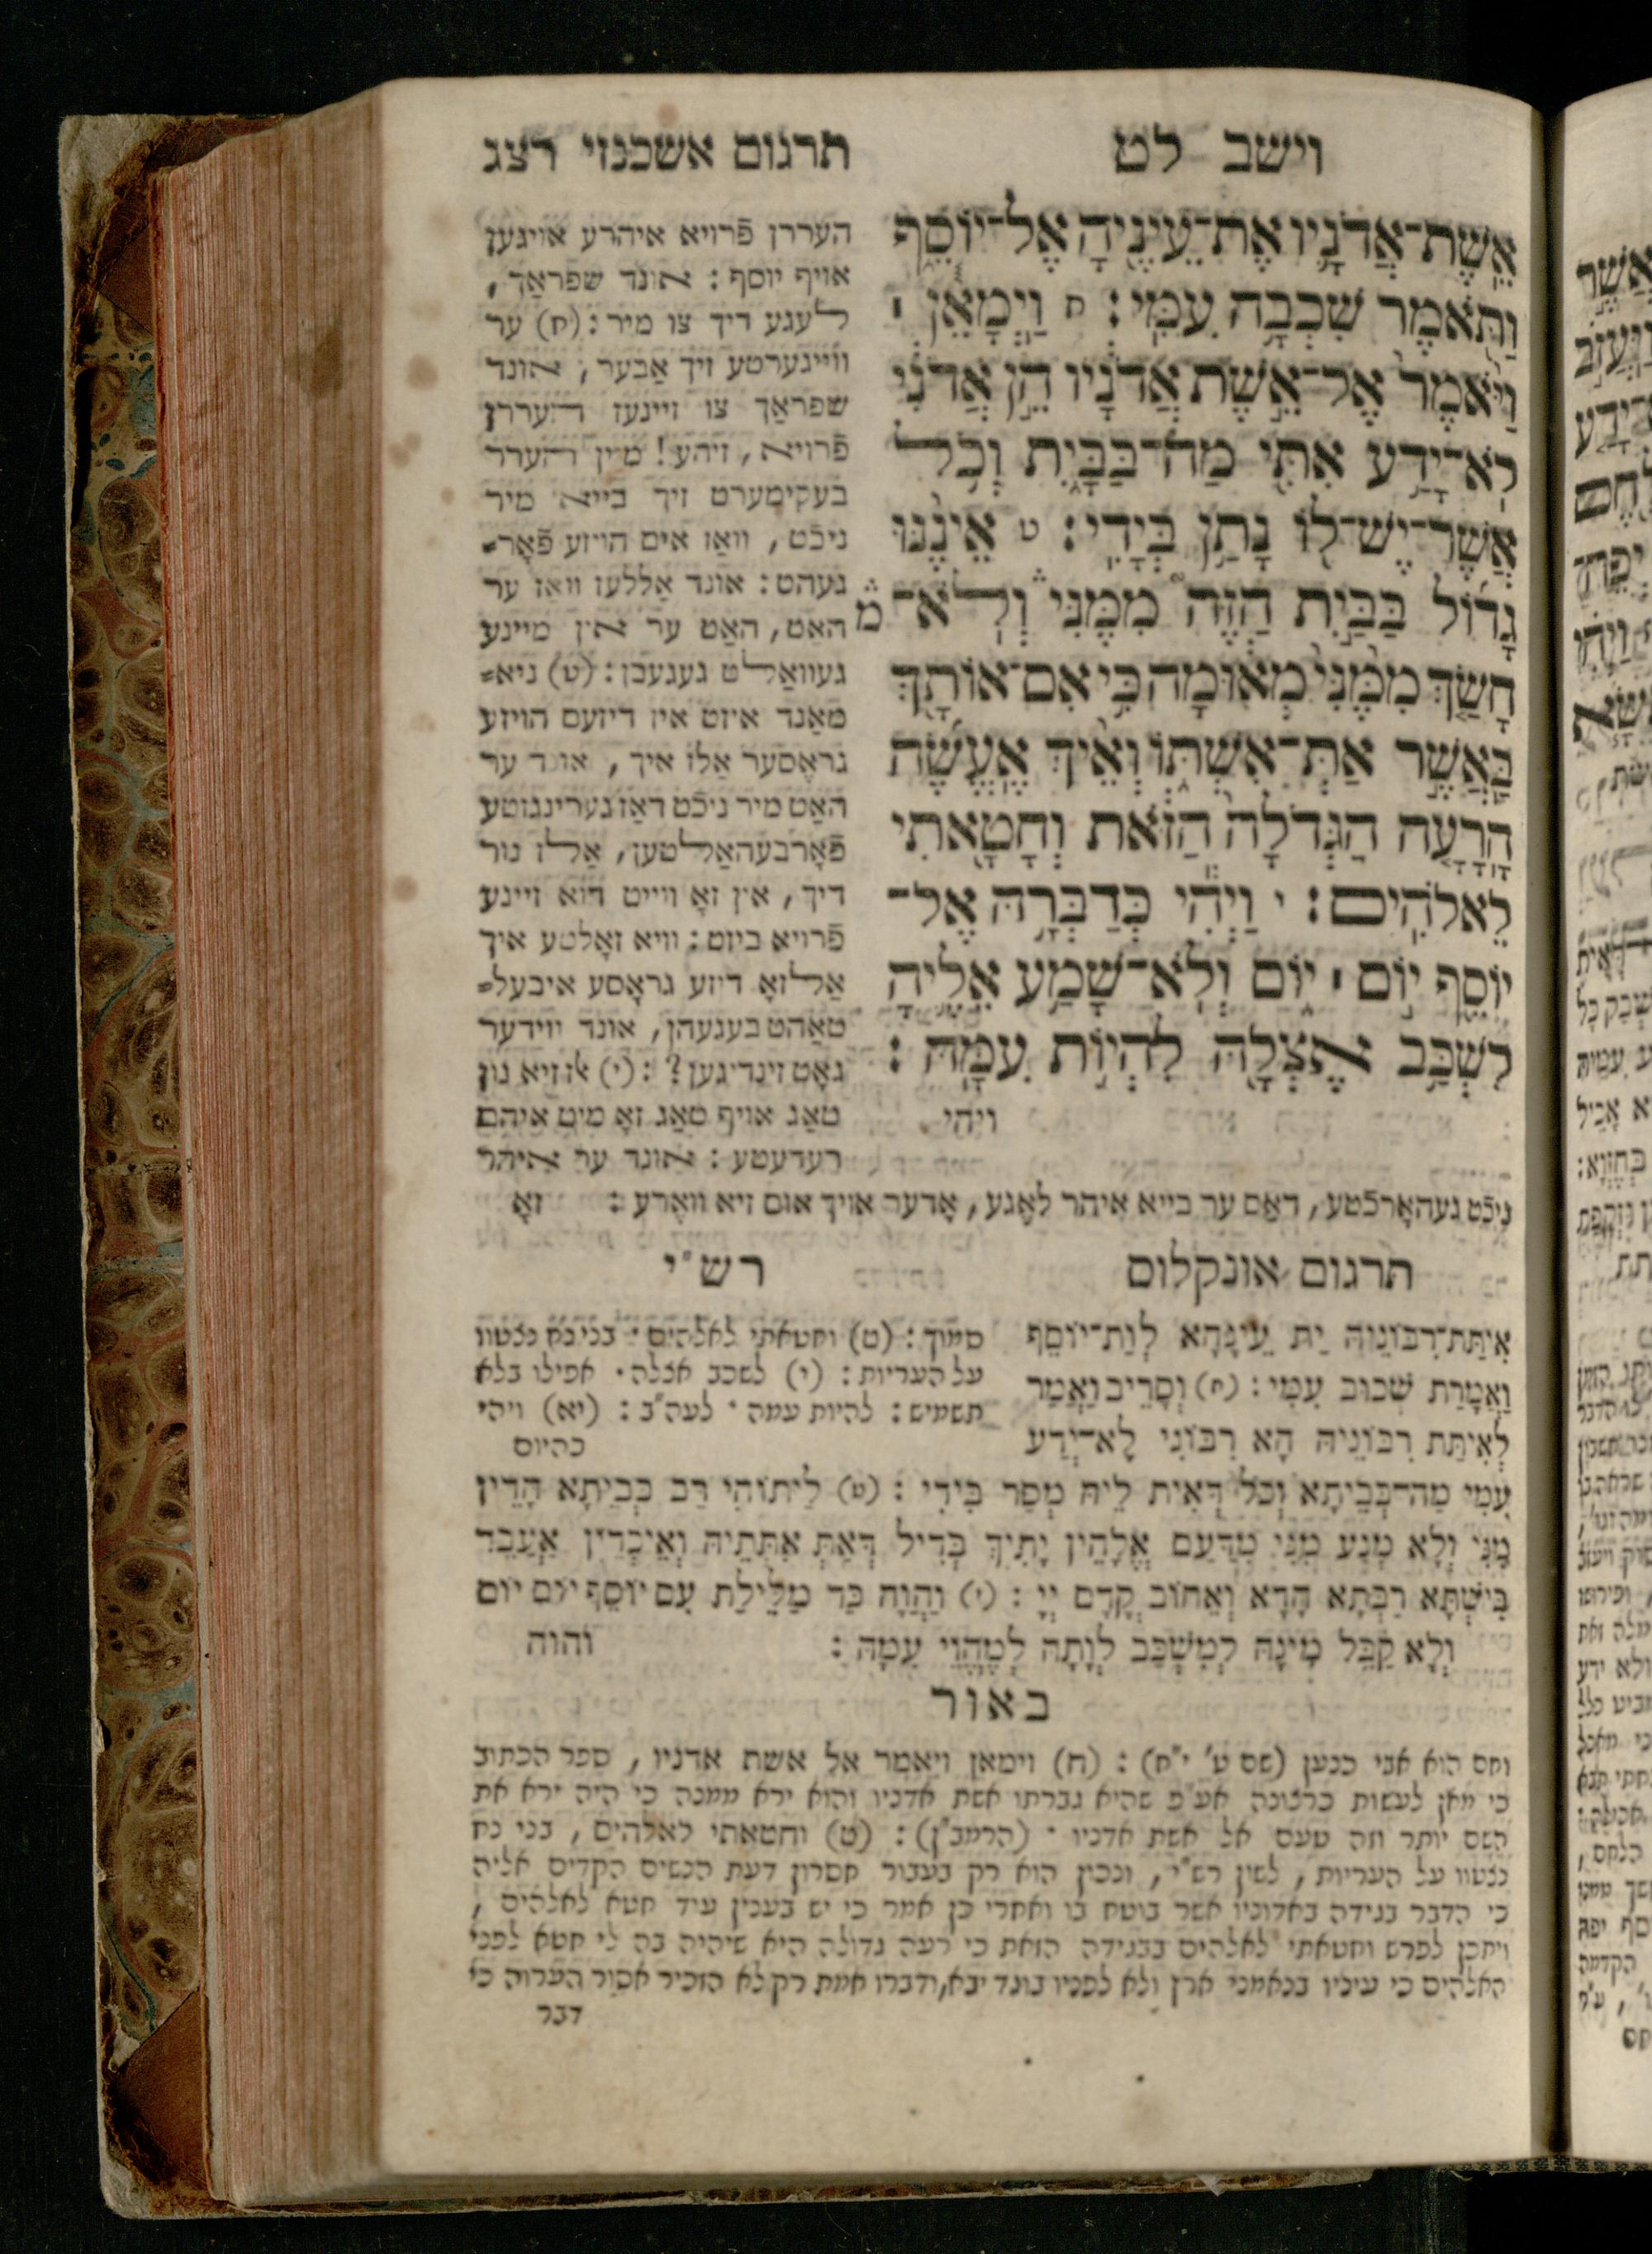 וישב לט
תרגום אשכנזי רצג
אֵֽשֶׁת־אֲדֹנָ֛יו אֶת־עֵינֶ֖יהָ אֶל־יוֹסֵ֑ף
וַתֹּ֖אמֶר שִׁכְבָ֥ה עִמִּֽי׃ ח וַיְמָאֵ֓ן ׀
וַיֹּ֙אמֶר֙ אֶל־אֵ֣שֶׁת אֲדֹנָ֔יו הֵ֣ן אֲדֹנִ֔י
לֹא־יָדַ֥ע אִתִּ֖י מַה־בַּבָּ֑יִת וְכֹ֥ל
אֲשֶׁר־יֶשׁ־ל֖וֹ נָתַ֥ן בְּיָדִֽי׃ ט אֵינֶ֨נּוּ
גָד֜וֹל בַּבַּ֣יִת הַזֶּה֮ מִמֶּנִּי֒ וְלֹֽא־
חָשַׂ֤ךְ מִמֶּ֙נִּי֙ מְא֔וּמָה כִּ֥י אִם־אוֹתָ֖ךְ
בַּאֲשֶׁ֣ר אַתְּ־אִשְׁתּ֑וֹ וְאֵ֨יךְ אֶֽעֱשֶׂ֜ה
הָרָעָ֤ה הַגְּדֹלָה֙ הַזֹּ֔את וְחָטָ֖אתִי
לֵֽאלֹהִֽים׃ י וַיְהִ֕י כְּדַבְּרָ֥הּ אֶל־
יוֹסֵ֖ף י֣וֹם ׀ י֑וֹם וְלֹא־שָׁמַ֥ע אֵלֶ֛יהָ
לִשְׁכַּ֥ב אֶצְלָ֖הּ לִהְי֥וֹת עִמָּֽהּ׃
ויהי
העררן פֿרויא איהרע אויגען
אויף יוסף : אונד שפראַך ,
לעגע דיך צו מיר : (ח) ער
ווייגערטע זיך אַבער , אונד
שפראַך צו זיינעז העררן
פֿרויא , זיהע ! מיין הערר
בעקימערט זיך בייא מיר
ניכֿט , וואַז אים הויזע פֿאָר=
געהט : אונד אַללעז וואַז ער
האַט , האַט ער אין מיינע
געוואַלט געגעבן : (ט) ניא=
מאַנד איזט אין דיזעם הויזע
גראָסער אַלז איך , אונד ער
האַט מיר ניכֿט דאַז גערינגזטע
פֿאָרבעהאַלטען , אַלז נור
דיך , אין זאָ ווייט דוא זיינע
פֿרויא ביזט : וויא זאָלטע איך
אַלזאָ דיזע גראָסע איבעל=
טאַהט בעגעהן , אונד ווידער
גאָט זינדיגען ? : (י) אַלז זיא נון
טאַג אויף טאַג זאָ מיט איהם
רעדעטע : אונד ער איהר
ניכֿט געהאָרכֿטע , דאַס ער בייא איהר לאָגע , אָדער אויך אום זיא וואָרע : זאָ
תרגום אונקלוס
אִיתַּת־רִבּוֹנֵיהּ יַת עֵינָהָא לְוַת־יוֹסֵף
וַאֲמָרַת שְׁכוּב עִמִּי : (ח) וְסָרֵיב וַאֲמַר
לְאִיתַּת רִבּוֹנֵיהּ הָא רִבּוֹנִי לָא־יְדַע
עִמִּי מַה־בְּבֵיתָא וְכֹל דְּאִית לֵיהּ מְסַר בִּידִי : (ט) לֵיתוֹהִי רַב בְּבֵיתָא הָדֵין
מִנִּי וְלָא מְנַע מִנִּי מִדַּעַם אֱלָהֵין יָתִיךְ בְּדִיל דְּאַתְּ אִתְּתֵיהּ וְאֵיכְדֵין אַעֲבֵד
בִּישְׁתָּא רַבְּתָא הָדָא וְאֵחוֹב קֳדָם יְיָ : (י) וַהֲוָה כַּד מַלֵּילַת עִם יוֹסֵף יוֹם יוֹם
וְלָא קַבֵּל מִינָהּ לְמִשְׁכַּב לְוָתַהּ לְמֶהֱוֵי עִמָּהּ : והוה
רש״י
סמוך : (ט) וחטאתי לאלהים · בני נח נצטוו
על העריות : (י) לשכב אצלה · אפילו בלא
תשמיש : להיות עמה · לעה״ב : (יא) ויהי
כהיום
באור
וחם הוא אבי כנען (שם ט׳ י״ח) : (ח) וימאן ויאמר אל אשת אדניו , ספר הכתוב
כי מאן לעשות כרצונה אע״פ שהיא גברתו אשת אדניו והוא ירא ממנה כי היה ירא את
השם יותר וזה טעם אל אשת אדניו · (הרמב״ן) : (ט) וחטאתי לאלהים , בני נח
נצטוו על העריות , לשון רש״י , ונכון הוא רק בעבור חסרון דעת הנשים הקדים אליה
כי הדבר בגידה באדוניו אשר בוטח בו ואחרי כן אמר כי יש בענין עוד חטא לאלהים ,
ויתכן לפרש וחטאתי לאלהים בבגידה הזאת כי רעה גדולה היא שיהיה בה לי חטא לפני
האלהים כי עיניו בנאמני ארץ ולא לפניו בוגד יבא, ודברו אמת רק לא הזכיר אסור הערוה כי
דבר